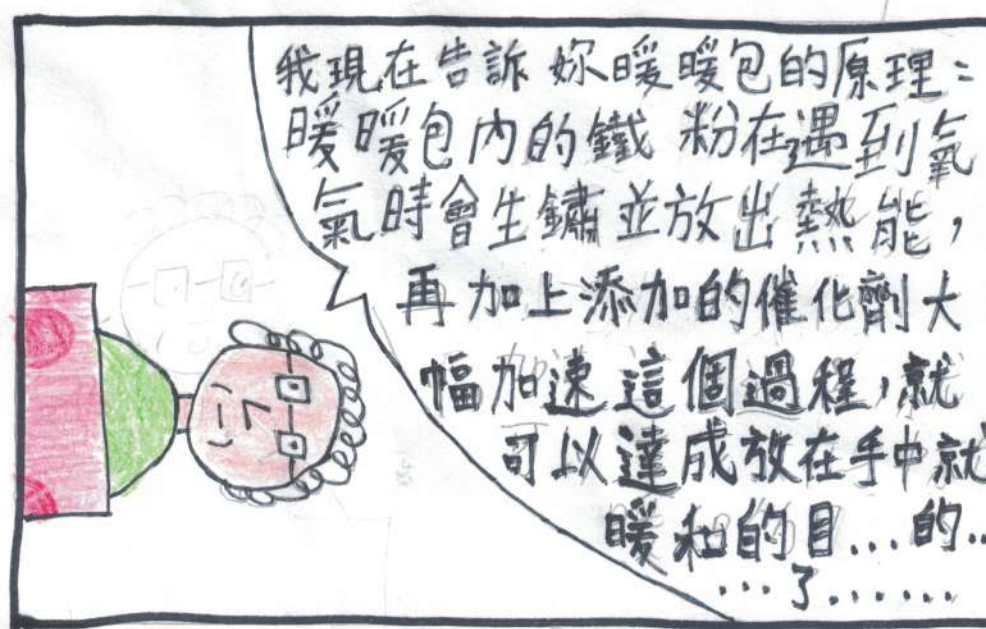 我現在告訴妳暖暖包的原理：
暖暖包內的鐵粉在遇到氧
氣時會生鏽並放出熱能，
再加上添加的催化劑大
幅加速這個過程，就
可以達成放在手中就
暖和的目...的..
...了......